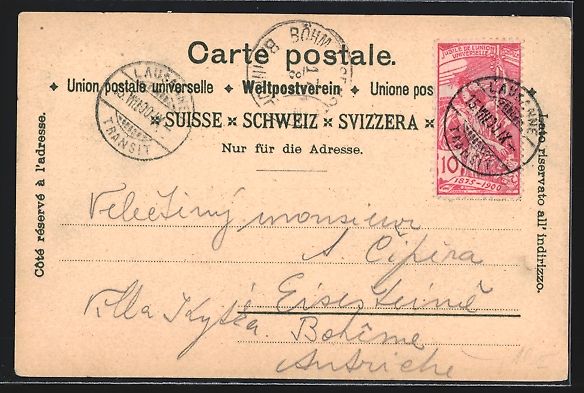 Carte postale.
Union postale universelle ✦ Weltpostverein ✦ Unione pos
SUISSE × SCHWEIZ × SVIZZERA ×
Nur für die Adresse.
Côté réservé à l'adresse.
Lato riservato all' indirizzo.
LAUSANNE
TRANSIT
BÖHM
JUBILÉ DE L'UNION
UNIVERSELLE
10
1875-1900
LAUSANNE
TRANSIT
monsieur
A. Cipéra
Villa
Bohême
Autriche